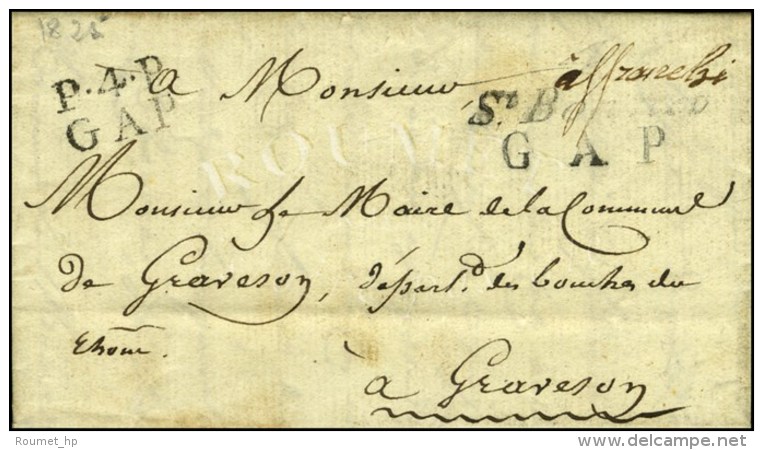 1825
P.4.P
GAP
à Monsieur affranchi
St B
GAP
ROUMET
Monsieur le Maire de la Commune
de Graveson, départ.t des bouches du
Rhône.
à Graveson
Roumet_hp
www.delcampe.net